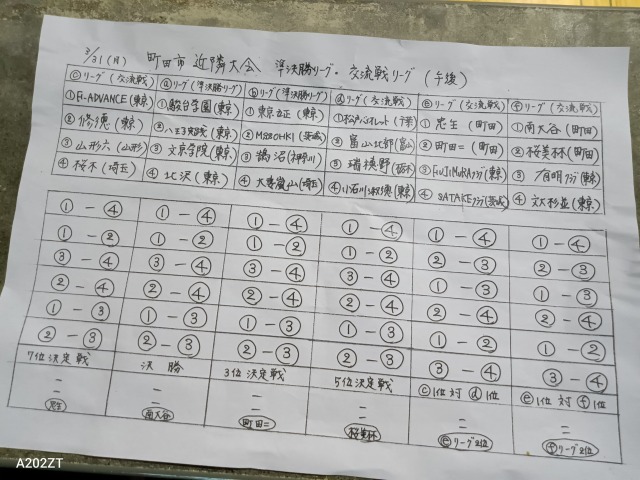 3/31(月) 町田市 近隣大会 準決勝リーグ・交流戦リーグ (午後)
ⓒリーグ (交流戦) ⓐリーグ (準決勝リーグ) ⓑリーグ (準決勝リーグ) ⓓリーグ (交流戦) ⓔリーグ (交流戦) ⓕリーグ (交流戦)
① ADVANCE (東京) ①駿台学園 (東京) ① 東京立正 (東京) ① (千葉) ① 忠生 (町田) ①南大谷 (町田)
② 修徳 (東京) ②八王子実践 (東京) ② (茨城) ② 富山北部 (富山) ② 町田二 (町田) ② 桜美林 (町田)
③ 山形六 (山形) ③ 文京学院 (東京) ③ 鵠沼 (神奈川) ③ 瑞穂野 (栃木) ③ FUJIMURAクラブ (東京) ③ 有明クラブ (東京)
④ 桜木 (埼玉) ④ 北沢 (東京) ④ 大妻嵐山 (埼玉) ④ (東京) ④ SATAKEクラブ (茨城) ④ 文大杉並 (東京)
①-④ ①-④ ①-④ ①-④ ①-④ ①-④
①-② ①-② ①-② ①-② ②-③ ②-③
③-④ ③-④ ③-④ ③-④ ①-③ ①-③
②-④ ②-④ ②-④ ②-④ ②-④ ②-④
①-③ ①-③ ①-③ ①-③ ①-② ①-②
②-③ ②-③ ②-③ ②-③ ③-④ ③-④
7位決定戦 決勝 3位決定戦 5位決定戦 ⓒ1位 対 ⓓ1位 ⓔ1位 対 ⓕ1位
忠生 南大谷 町田二 桜美林 ⓔリーグ2位 ⓕリーグ2位
A202ZT